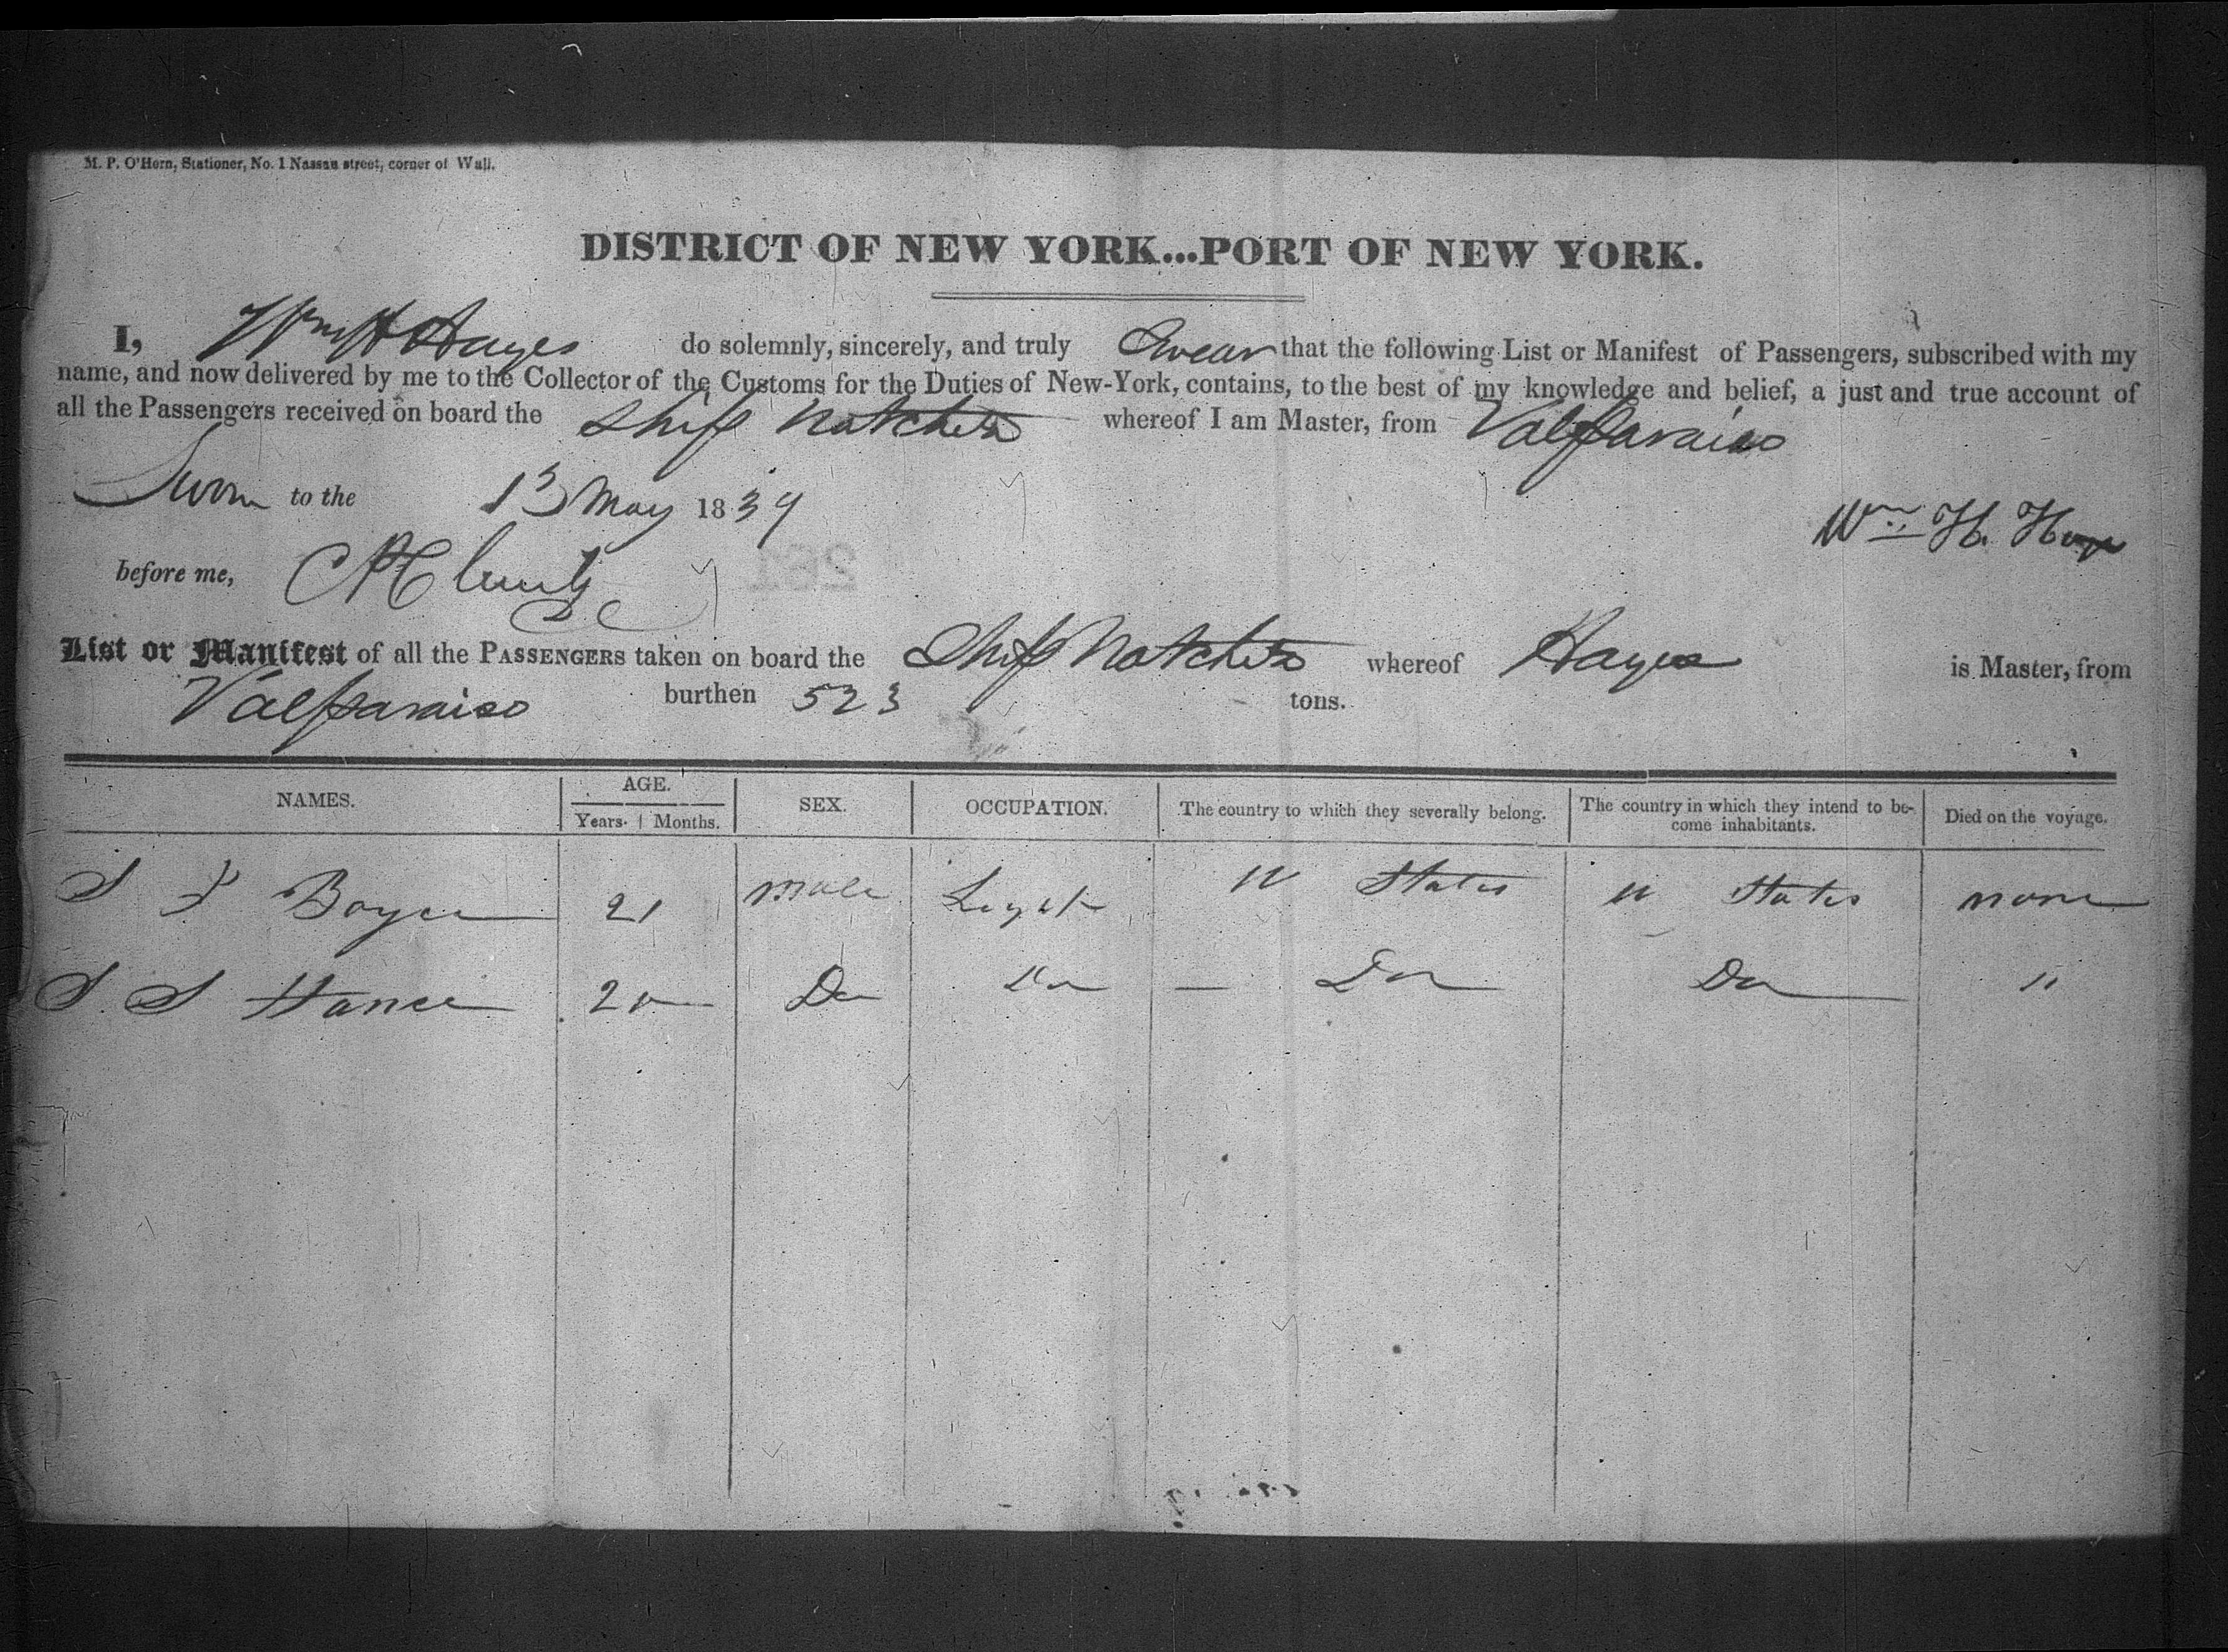 M. P. O'Hern, Stationer, No. 1 Nassau street, corner of Wall.
DISTRICT OF NEW YORK...PORT OF NEW YORK.
I, Wm H Hayes do solemnly, sincerely, and truly Swear that the following List or Manifest of Passengers, subscribed with my
name, and now delivered by me to the Collector of the Customs for the Duties of New-York, contains, to the best of my knowledge and belief, a just and true account of
all the Passengers received on board the Ship Natchez whereof I am Master, from Valparaiso
Sworn to the 13 May 1839
Wm H. Hayes
before me,
List or Manifest of all the PASSENGERS taken on board the Ship Natchez whereof Hayes is Master, from
Valparaiso burthen 523 tons.
NAMES. AGE. Years. Months. SEX. OCCUPATION. The country to which they severally belong. The country in which they intend to become inhabitants. Died on the voyage.
Boyce 21 Male U States U States none
S S Hance 20 Do Do Do Do "